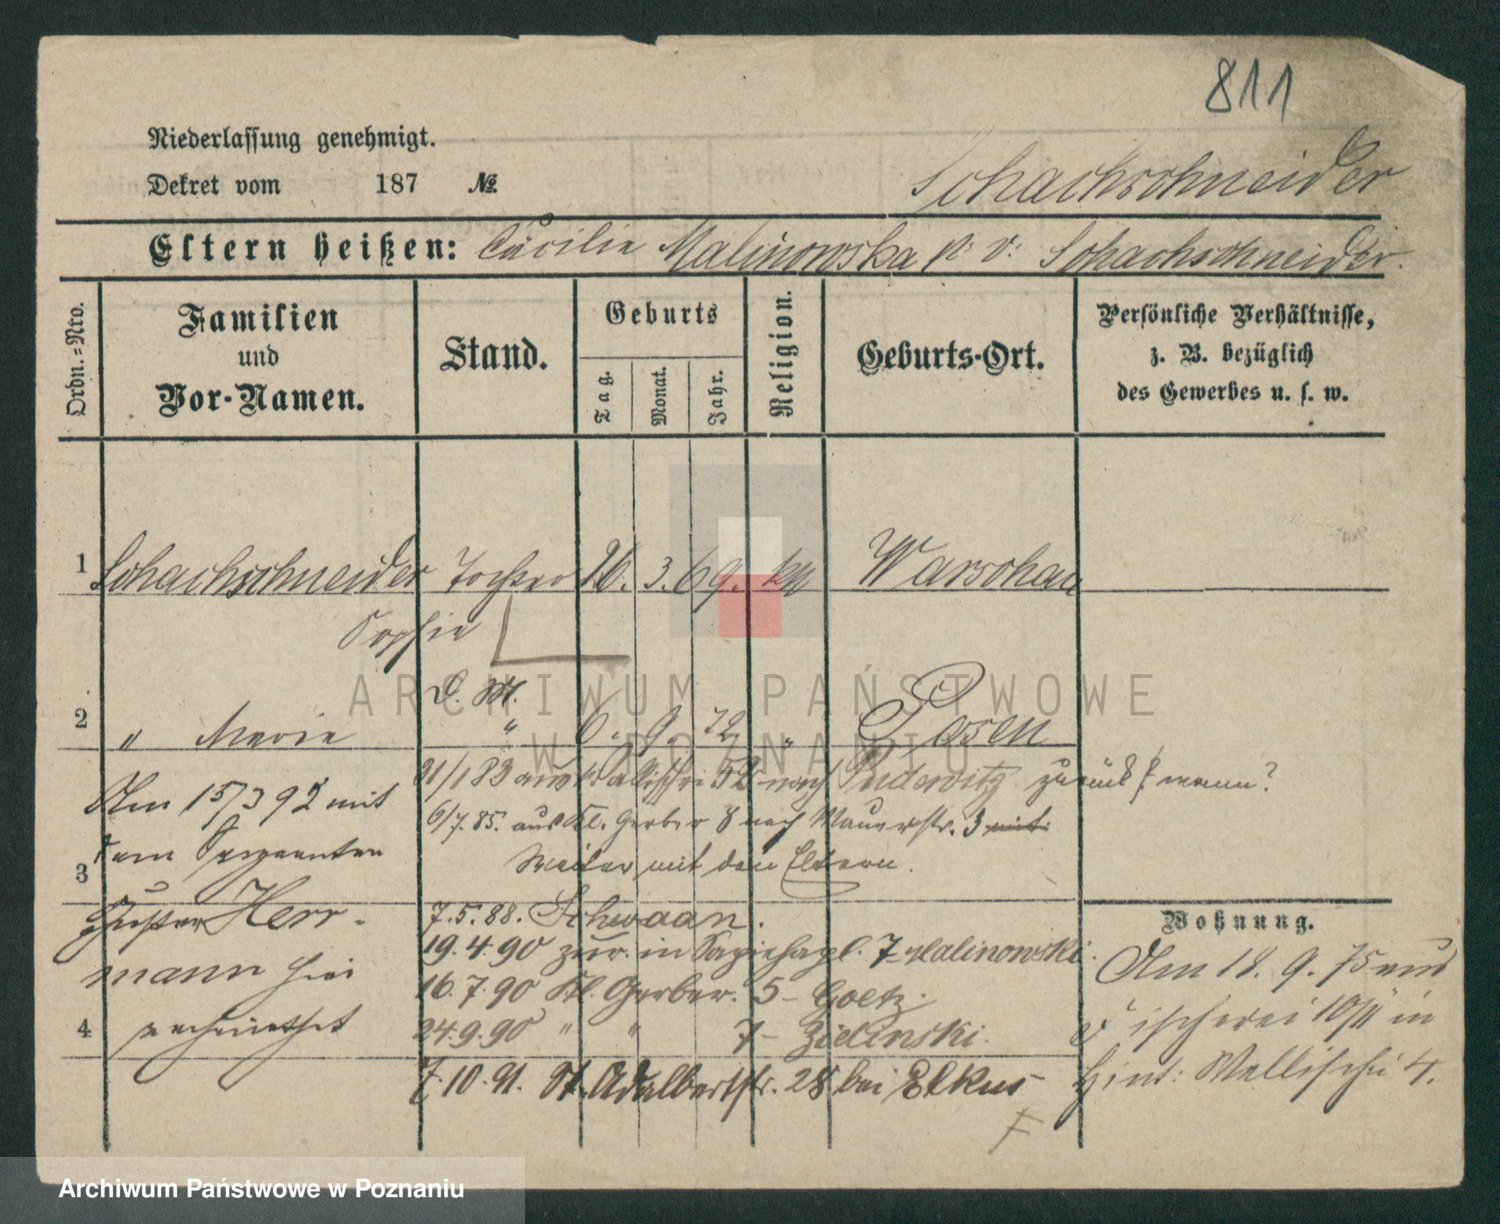 811
Niederlassung genehmigt.
Dekret vom 187 №
Schachschneider
Eltern heißen: Cäcilie Malinowska p: v: Schachschneider.
Ordn.=Nro.
Familien und Vor-Namen.
Stand.
Geburts
Tag.
Monat.
Jahr.
Religion.
Geburts-Ort.
Persönliche Verhältnisse,
z. B. bezüglich
des Gewerbes u. s. w.
1 Schachschneider Tochter 26. 3. 69. kth Warschau
Sophie
D. M.
2 " Marie " 6. 9. 72 " Posen
21/1 83 aus Wallischei 52 nach Pudewitz zurück? wann?
Am 15/3 92 mit
6/7. 85. aus Kl. Gerber 8 nach Mauerstr. 3 mit
dem Sergeanten
Weiter mit den Eltern.
3
Gustav Herr-
7. 5. 88. Schwaan.
Wohnung.
19. 4. 90 zur. in Sapiehapl. 7 - Malinowski.
Am 18. 9. 75 aus
mann hier
16. 7. 90 Kl. Gerber. 5 - Goetz.
Fischerei 10/11 in
4 verheirathet
24. 9. 90 " " 7 - Zielinski.
Hint: Wallischei 4.
7. 10. 91. St. Adalbertstr. 28 bei Elkus
ARCHIWUM PAŃSTWOWE
W POZNANIU
Archiwum Państwowe w Poznaniu